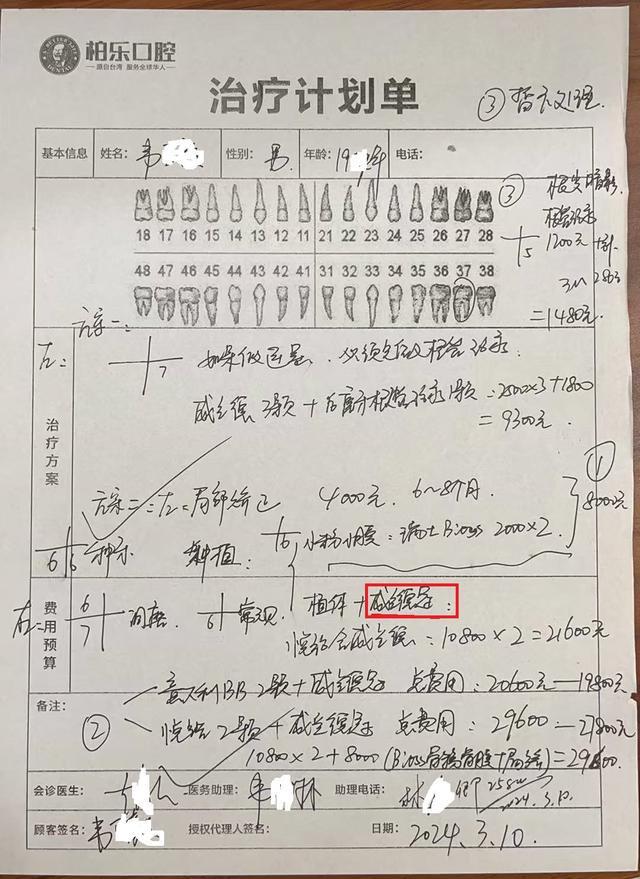 柏乐口腔
源自台湾 服务全球华人
治疗计划单
③ 暂不处理.
基本信息 姓名: 韦 性别: 男 年龄: 19 年 电话:
18 17 16 15 14 13 12 11 21 22 23 24 25 26 27 28
48 47 46 45 44 43 42 41 31 32 33 34 35 36 37 38
③ 根尖暗影
根管治疗
5 1200元+
280元
=1480元
方案一:
左: 7 如果做 必须先做根管治疗.
威兰德3颗+后离子根管治疗1颗=2500×3+1800
=9300元.
治疗方案
方案二: 左: 局部矫正 4000元. 6~8个月.
① 8000元
6 6 种植 种植: 6 骨粉骨膜: 瑞士Bioss 2000×2.
费用预算
右: 6 7 间隙 6 常规 植体+威兰德冠:
威兰德: 10800×2=21600元
备注:
一意大利BB 2颗+威兰德冠 总费用: 20600元—19800元
② 2颗+威兰德冠 总费用: 29600—27800元
10800×2+8000 (Bioss骨粉骨膜+局矫)=29600.
会诊医生: 医务助理: 韦 林 助理电话: 林
2024.3.10.
顾客签名: 韦 授权代理人签名: 日期: 2024.3.10.